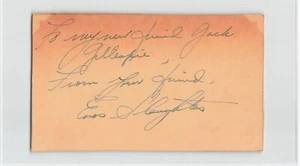 To my new friend Jack
Gillespie,
From your friend,
Enos Slaughter